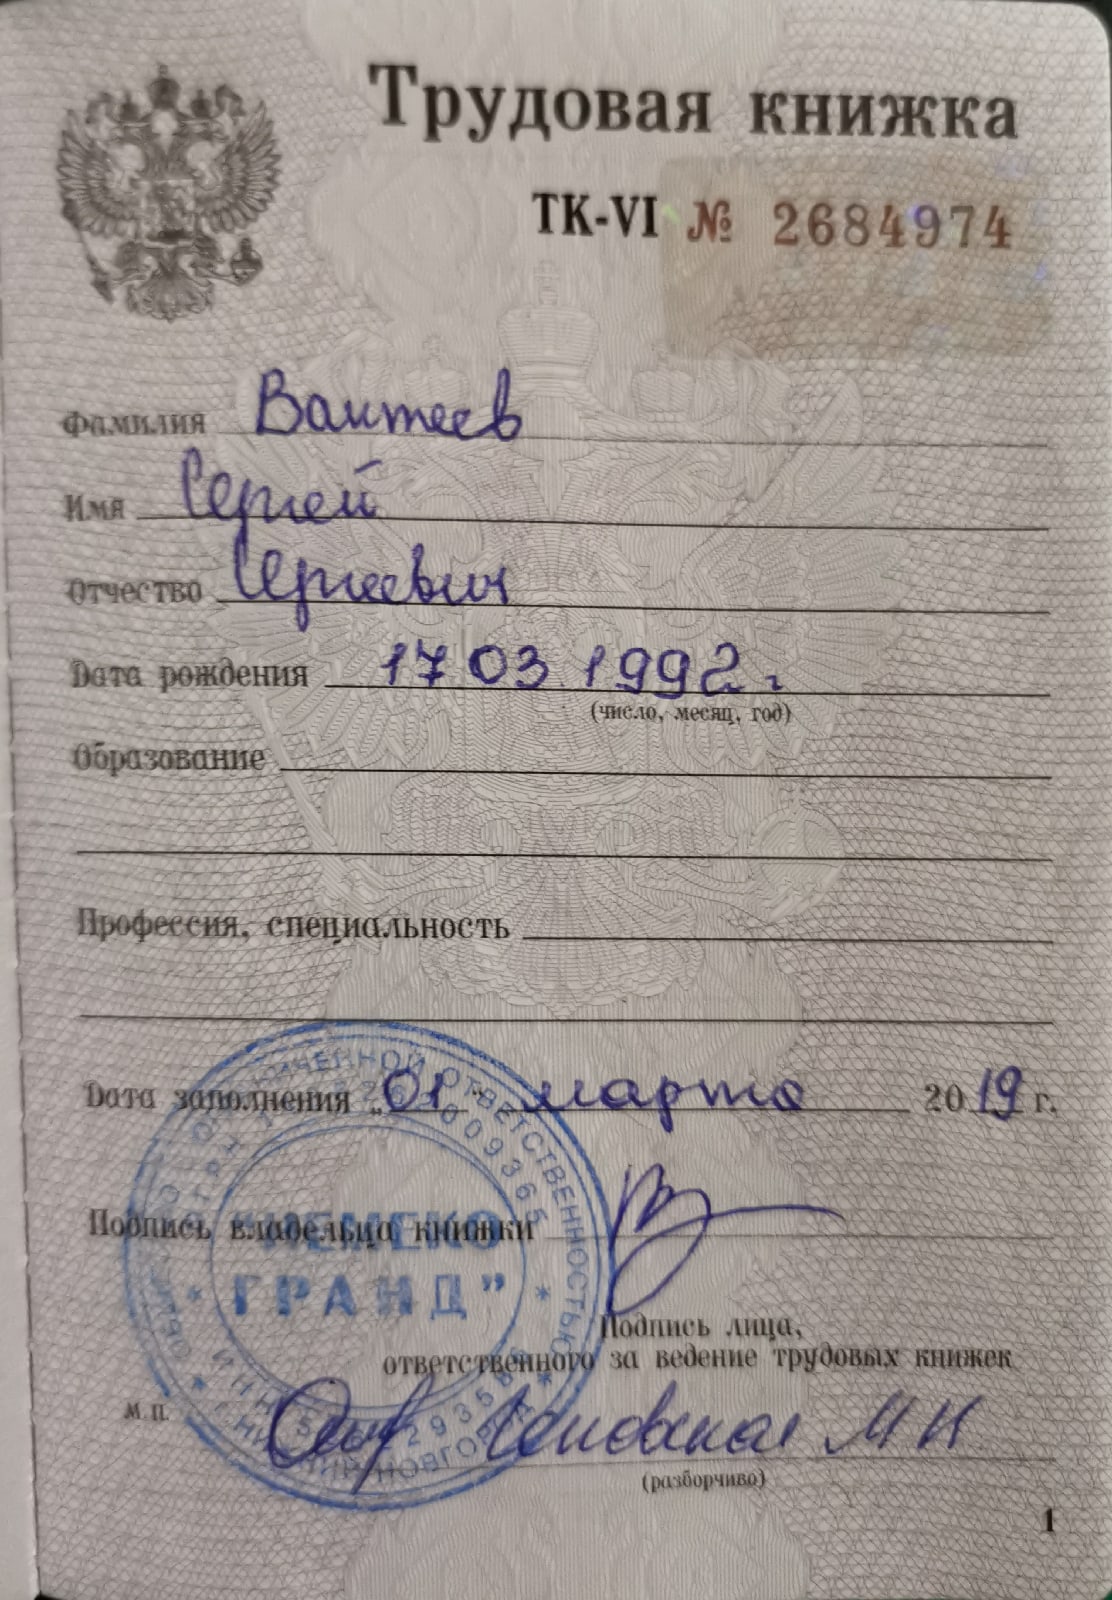 Трудовая книжка
ТК-VI № 2684974
Фамилия Ваитеев
Имя Сергей
Отчество Сергеевич
Дата рождения 17 03 1992 г.
(число, месяц, год)
Образование
Профессия, специальность
Дата заполнения „01" марта 2019 г.
Подпись владельца книжки
ГРАНД"
Подпись лица,
ответственного за ведение трудовых книжек
М.П. М Н
(разборчиво)
ОГРАНИЧЕННОЙ ОТВЕТСТВЕННОСТЬЮ
Г. НИЖНИЙ НОВГОРОД
1